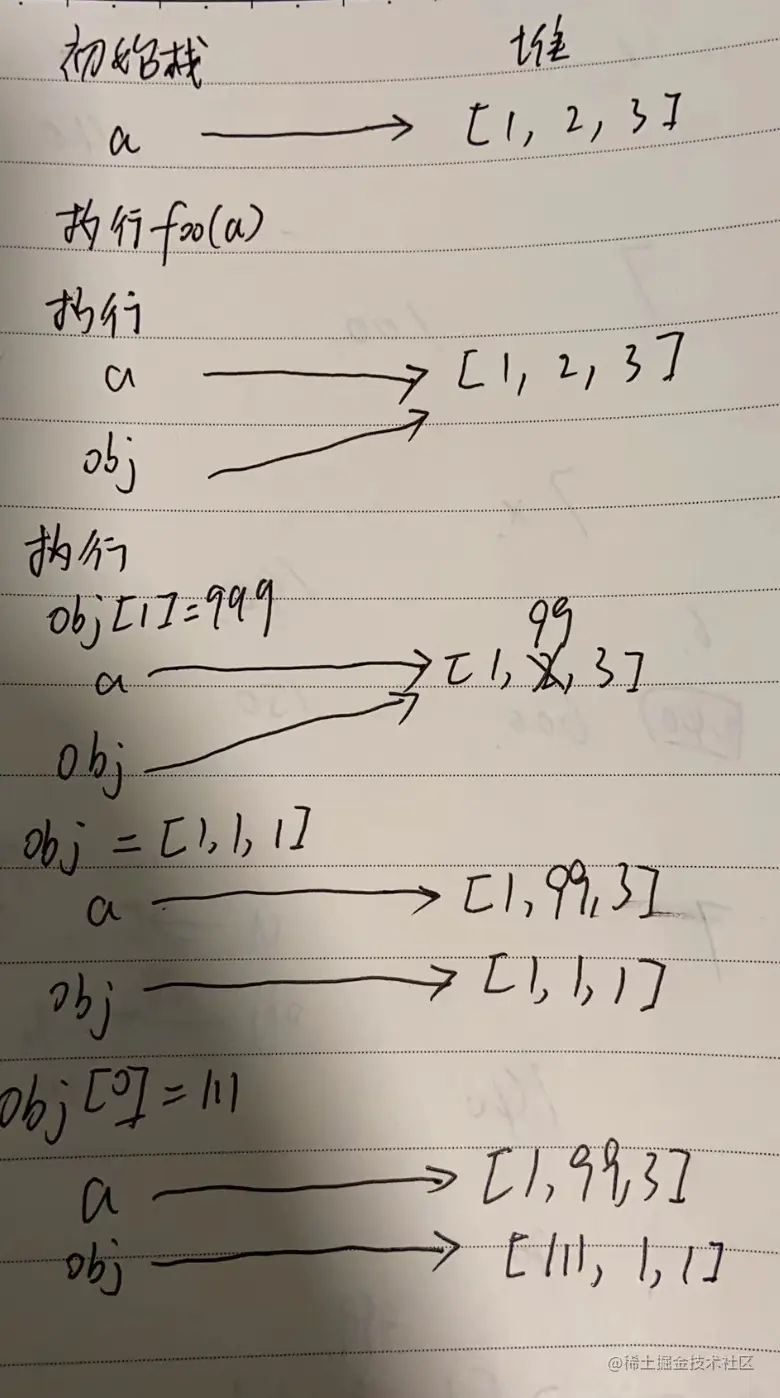 初始栈 堆
a → [1, 2, 3]
执行 foo(a)
执行
a → [1, 2, 3]
obj
执行
obj[1]=999
99
a → [1, 2, 3]
obj
obj = [1, 1, 1]
a → [1, 99, 3]
obj → [1, 1, 1]
obj[0]=111
a → [1, 99, 3]
obj → [111, 1, 1]
@稀土掘金技术社区